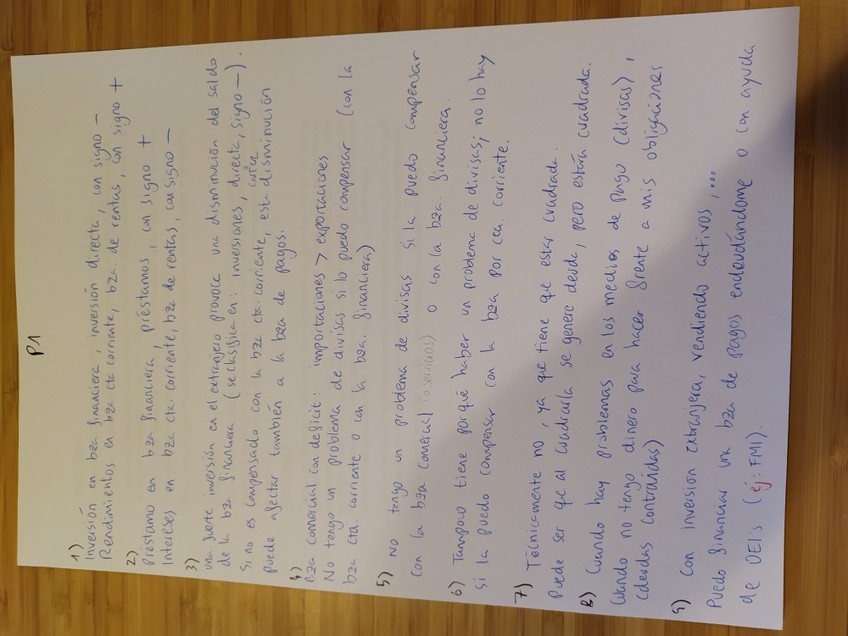 P1
1)
Inversión en bza financiera, inversión directa, con signo -
Rendimientos en bza cta corriente, bza de rentas, con signo +
2)
Préstamo en bza financiera, préstamos, con signo +
Intereses en bza cta. corriente, bza de rentas, con signo -
3)
una fuerte inversión en el extranjero provoca una disminución del saldo
de la bza financiera (se clasifica en: inversiones, directa, signo -).
Si no es compensado con la bza cta. corriente, esta disminución
puede afectar también a la bza de pagos.
4)
Bza comercial con deficit: importaciones > exportaciones
No tengo un problema de divisas si lo puedo compensar (con la
bza cta. corriente o con la bza. financiera)
5) No tengo un problema de divisas si la puedo compensar
con la bza comercial (o servicios) o con la bza. financiera.
6) Tampoco tiene porqué haber un problema de divisas; no lo hay
si la puedo compensar con la bza por cta. corriente.
7) Técnicamente no, ya que tiene que estar cuadrada.
Puede ser que al cuadrarla se genere deuda, pero estará cuadrada.
8) Cuando hay problemas en los medios de pago (divisas),
cuando no tengo dinero para hacer frente a mis obligaciones
(deudas contraídas)
9) Con inversión extranjera, vendiendo activos, ...
Puedo financiar una bza de pagos endeudándome o con ayuda
de OEI's (ej: FMI).